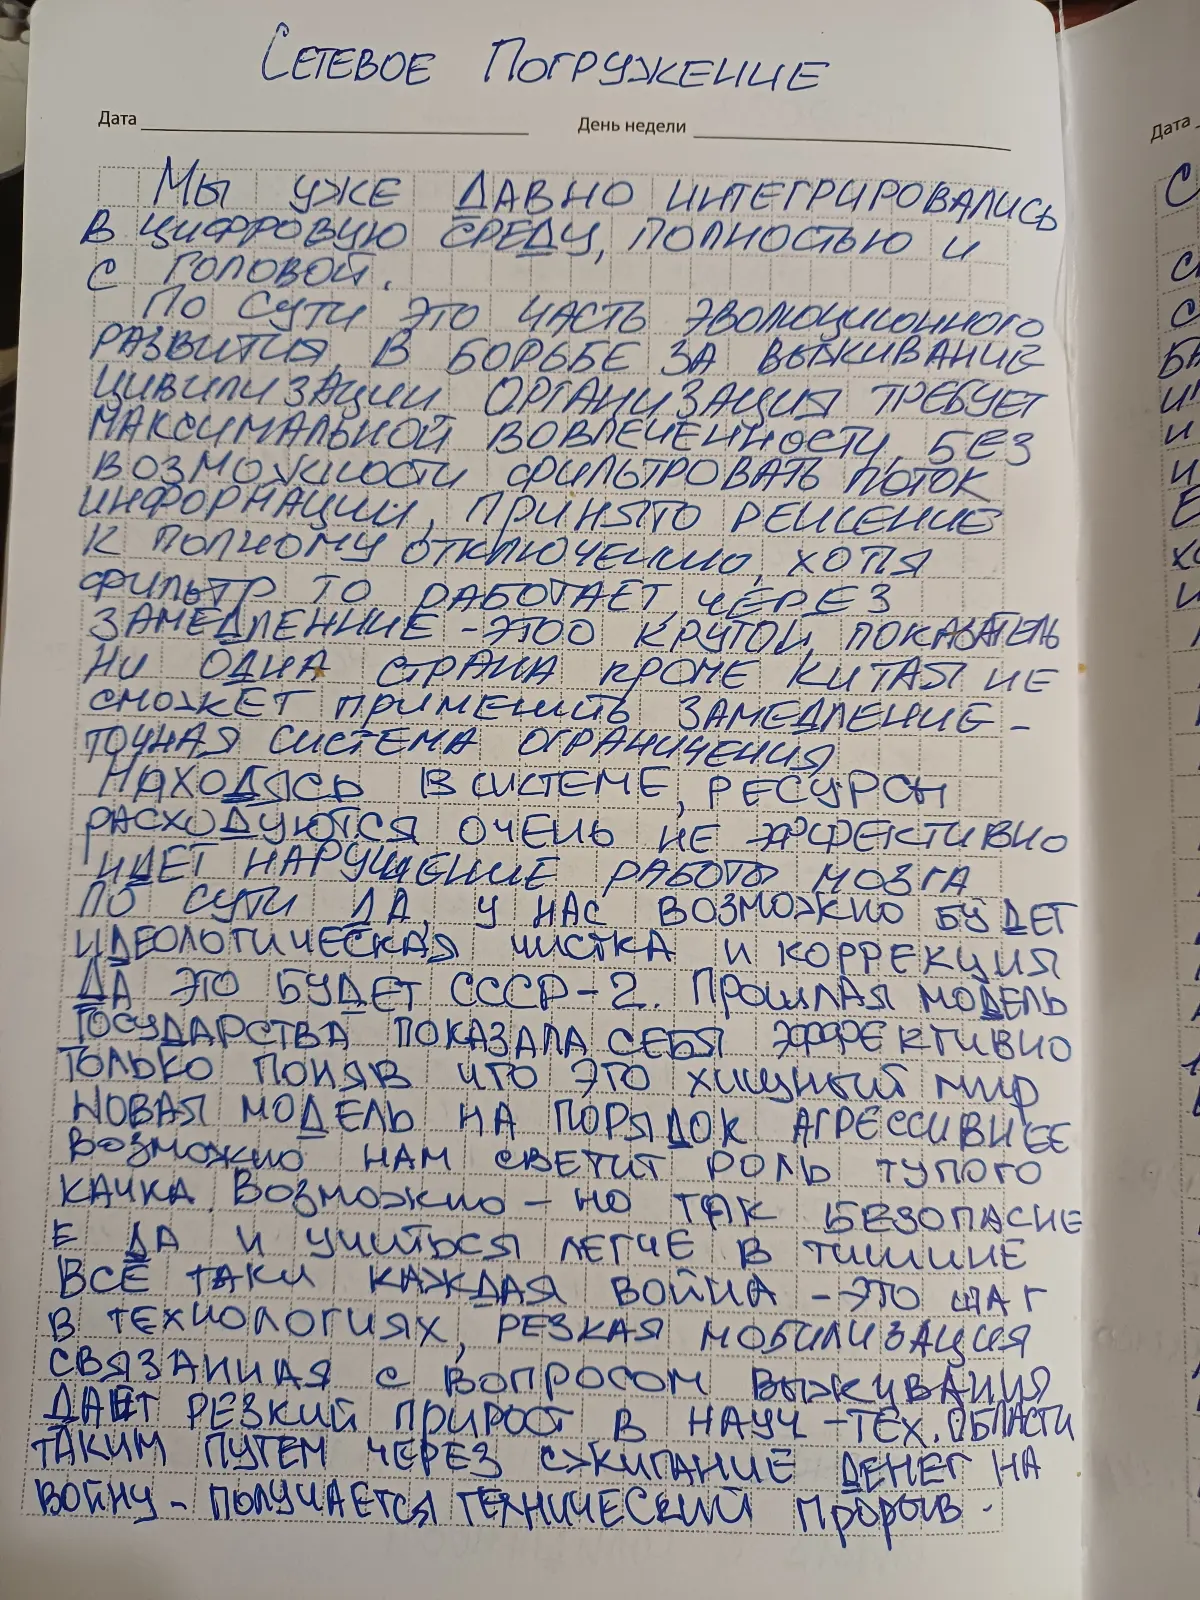 Сетевое Погружение
Дата
День недели
Дата
Мы уже давно интегрировались
в цифровую среду, полностью и
с головой.
По сути это часть эволюционного
развития в борьбе за выживание
цивилизации организация требует
максимальной вовлеченности, без
возможности фильтровать поток
информации, принято решение
к полному отключению, хотя
фильтр то работает, через
замедленние - этоо крутой, показатель
ни одна страна кроме Китая не
сможет применить замедление -
точная система ограничения
Находясь в системе, ресурсы
расходуются очень не эффективно
идет нарушение работы мозга
по сути да, у нас возможно будет
идеологическая чистка и коррекция
Да это будет СССР-2. Прошлая модель
государства показала себя эффективно
только поняв что это хищный мир
новая модель на порядок агрессивнее
возможно нам светит роль тупого
качка. Возможно - но так безопасне
е да и учиться легче в тишине
Всё таки каждая война - это шаг
в технологиях, резкая мобилизация
связанная с вопросом выживания
дает резкий прирост в науч-тех. области
таким путем через сжигание денег на
войну - получается технический прорыв.